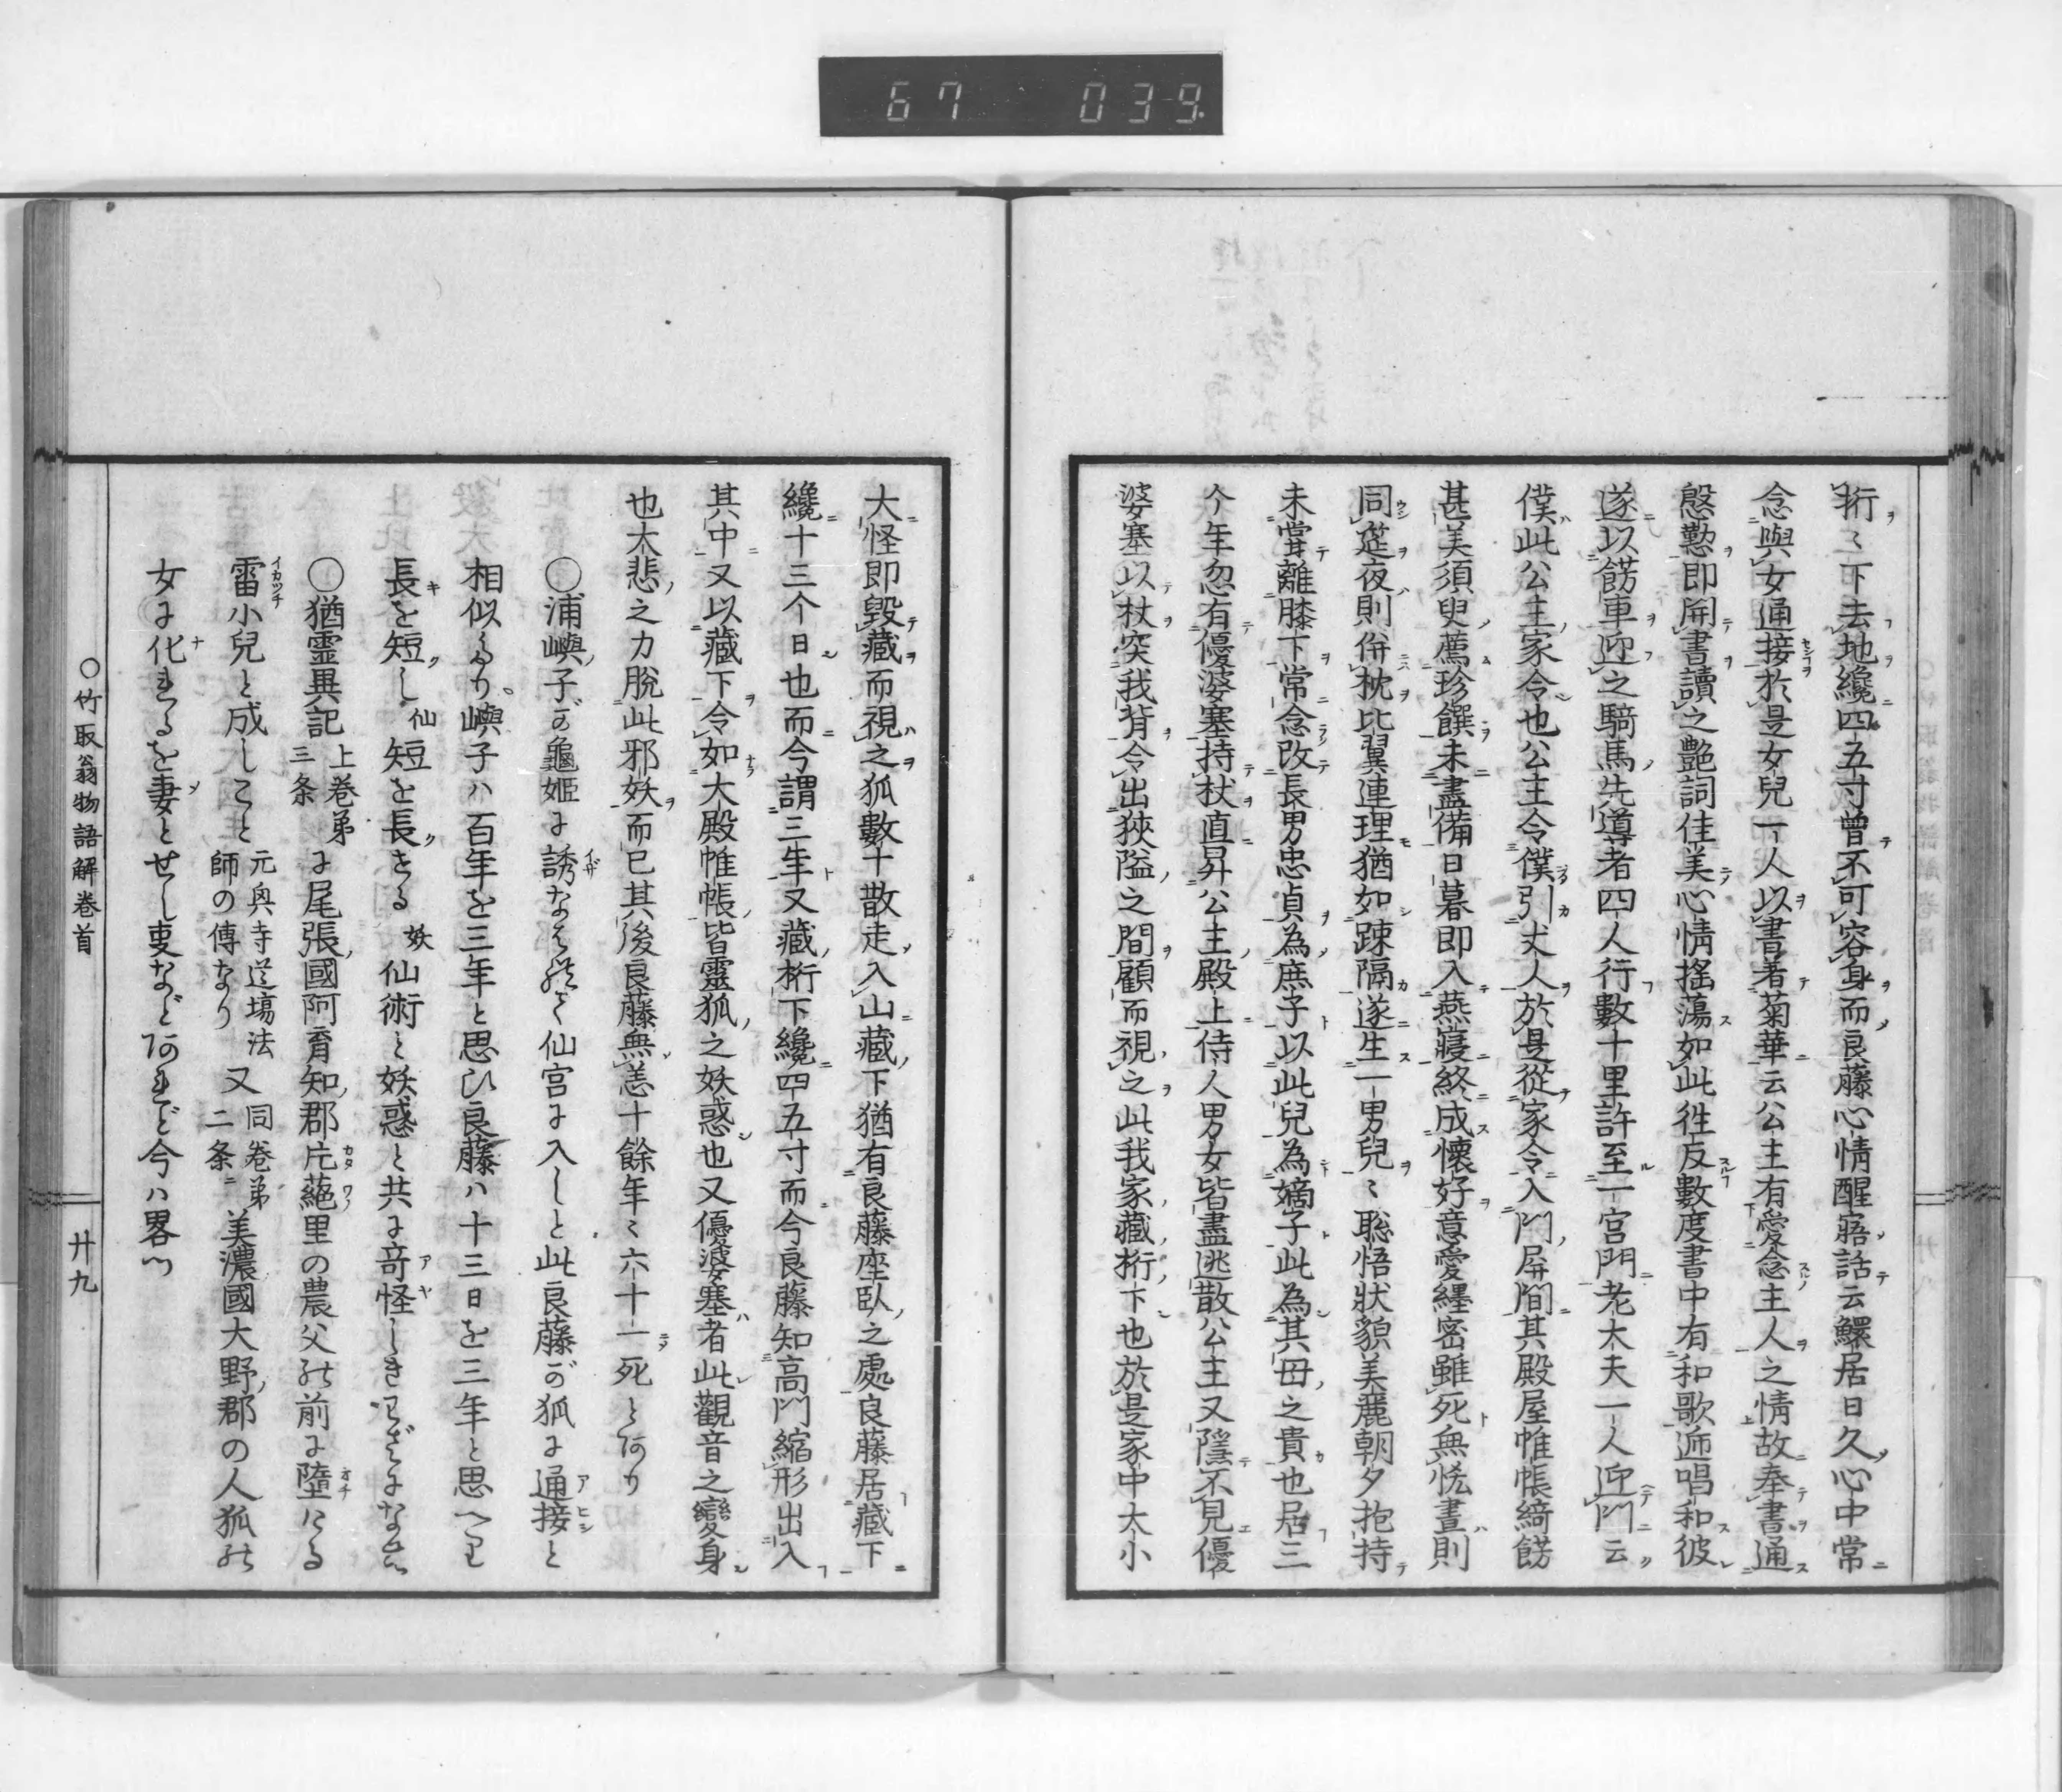 67 039
桁〻下去地纔四五寸曾不可容身而良藤心情醒寤話云鰥居日久心中常
念與女通接於是女兒一人以書著菊華云公主有愛念主人之情故奉書通
慇懃即開書讀之艶詞佳美心情搖蕩如此徃反數度書中有和歌逓唱和彼
遂以餝車迎之騎馬先導者四人行數十里許至一宮門老太夫一人迎門云
僕此公主家令也公主令僕引丈人於是從家令入門屏間其殿屋帷帳綺餝
甚美須臾薦珍饌未盡備日暮即入燕寢終成懷好意愛纒密雖死無恡晝則
同莚夜則併枕比翼連理猶如踈隔遂生一男兒〻聡悟狀貌美麗朝夕抱持
未嘗離膝下常念改長男忠貞為庶子以此兒為嫡子此為其母之貴也居三
个年忽有優婆塞持杖直昇公主殿上侍人男女皆盡逃散公主又隱不見優
婆塞以杖突我背令出狹隘之間顧而視之此我家藏桁下也於是家中大小
大怪即毀藏而視之狐數十散走入山藏下猶有良藤座臥之處良藤居藏下
纔十三个日也而今謂三年又藏桁下纔四五寸而今良藤知高門縮形出入
其中又以藏下令如大殿帷帳皆靈狐之妖惑也又優婆塞者此觀音之變身
也大悲之力脫此邪妖而已其後良藤無恙十餘年〻六十一死とあり
○浦嶼子が龜姫に誘なはれて仙宮に入しと此良藤が狐に通接と
相似たり嶼子ハ百年を三年と思ひ良藤ハ十三日を三年と思へり
長を短し仙短を長きる妖仙術と妖惑と共に竒怪しきわざになむ
○猶霊異記上巻第三条に尾張國阿育知郡片蕝里の農父の前に墮たる
雷小兒と成しこと元興寺道塲法師の傳なり又同巻第二条ニ美濃國大野郡の人狐の
女に化れるを妻とせし叓などあれど今ハ畧つ
○竹取翁物語解巻首
廾九